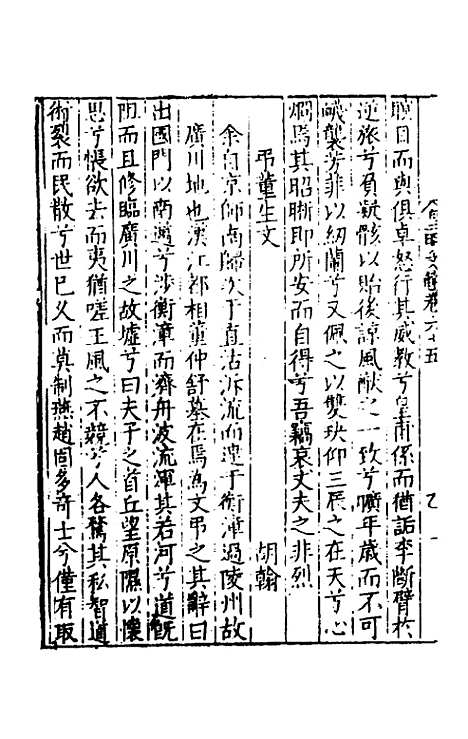 文衡卷六十五
瞑目而與俱卓怒行其威教兮皇甫係而猶詬李斷臂於
逆旅兮負骸以貽後諒風猷之一致兮曠年歲而不可
製芳菲以紉蘭兮又佩之以雙玦仰三辰之在天兮心
烱焉其昭晰即所安而自得兮吾竊哀丈夫之非烈
弔董生文 胡翰
余自京師南歸次于直沽泝流而達于衡漳過陵州故
廣川地也漢江都相董仲舒墓在焉為文弔之其辭曰
出國門以南邁兮涉衡漳而齊舟波流渾其若河兮道既
阻而且修臨廣川之故墟兮曰夫子之首丘望原隰以懷
思兮悵欲去而夷猶嗟王風之不競兮人各騖其私智道
術裂而民散兮世已久而莫制燕趙固多奇士兮僅有取